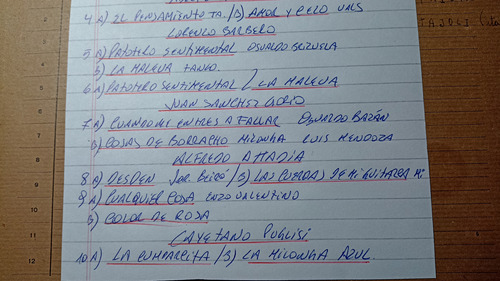 4 A) EL PENSAMIENTO TA. / B) AMOR Y CELO VALS
LORENZO BARBERO
5 A) PATOTERO SENTIMENTAL OSVALDO BRIZUELA
B) LA MALEVA TANGO.
6 A) PATOTERO SENTIMENTAL / LA MALEVA
JUAN SANCHEZ GORIO
7 A) CUANDO ME ENTRES A FALLAR OSVALDO BAZÁN
B) COSAS DE BORRACHO MILONGA LUIS MENDOZA
ALFREDO ATTADIA
8 A) DESDEN JOR. / B) LAS CUERDAS DE MI GUITARRA MI
9 A) CUALQUIER COSA ENZO VALENTINO
B) COLOR DE ROSA
CAYETANO PUGLISI.
10 A) LA CUMPARCITA / B) LA MILONGA AZUL.
2
3
4
5
6
7
8
9
10
11
12